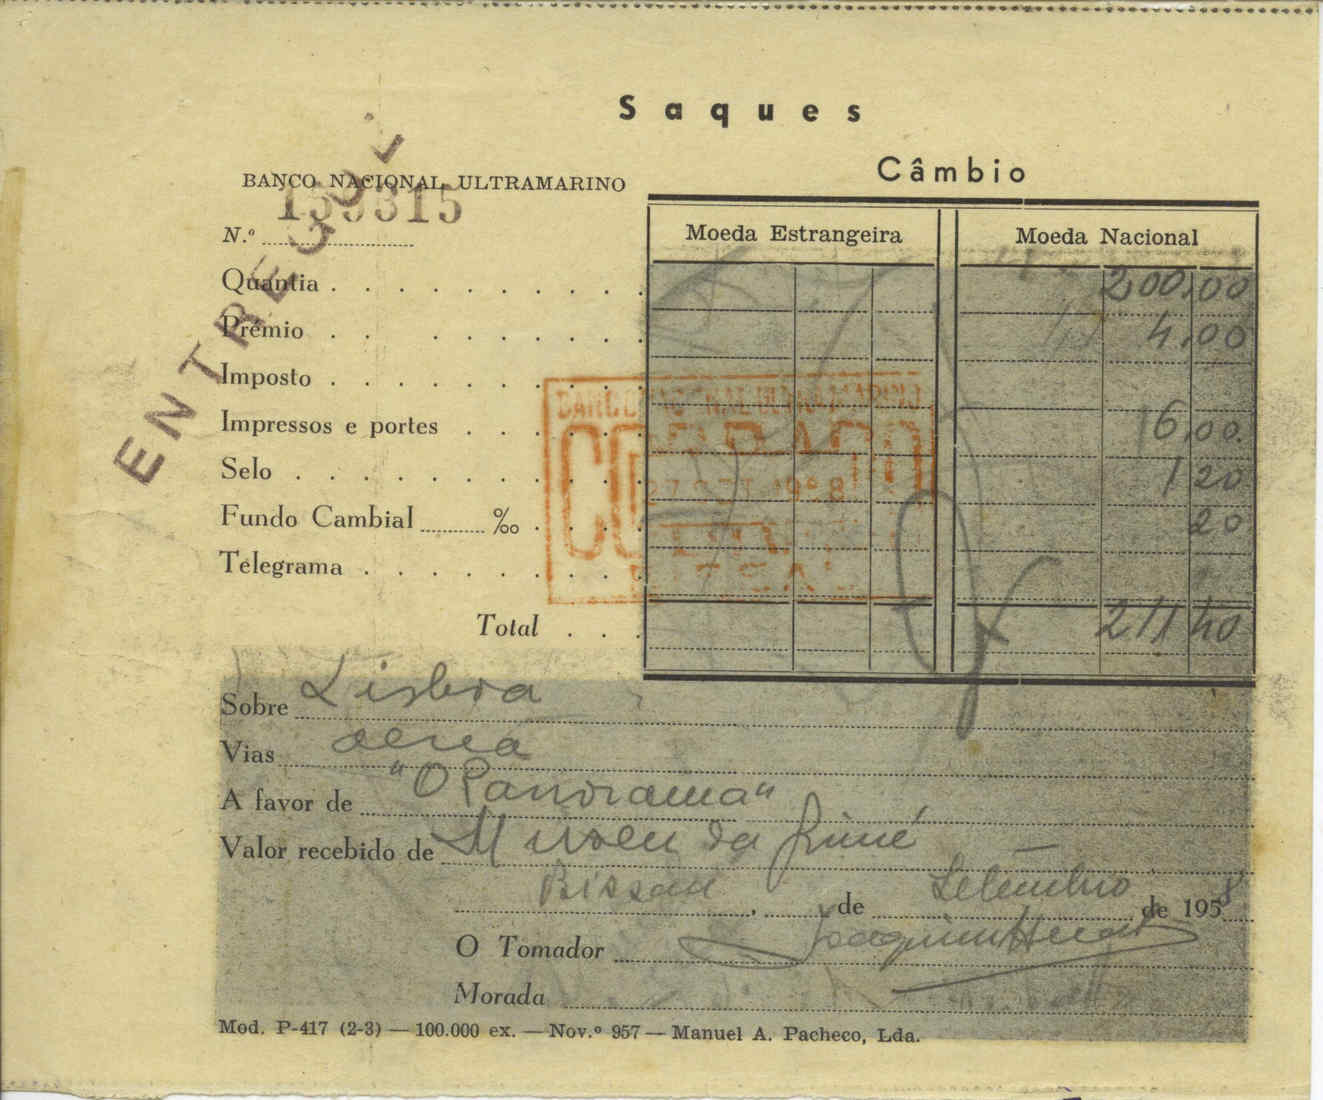 Saques
Câmbio
BANCO NACIONAL ULTRAMARINO
159315
N.º
ENTREGUE
Moeda Estrangeira Moeda Nacional
Quantia 200,00
Prémio 4,00
Imposto
BANCO NACIONAL ULTRAMARINO
Impressos e portes 6,00
Selo 1 20
Fundo Cambial ‰ 20
Telegrama
Total 211 40
Sobre Lisboa
Vias aerea
A favor de "O Panorama"
Valor recebido de Museu da Guiné
Bissau, de Setembro de 1958
O Tomador Joaquim
Morada
Mod. P-417 (2-3) — 100.000 ex. — Nov.º 957 — Manuel A. Pacheco, Lda.